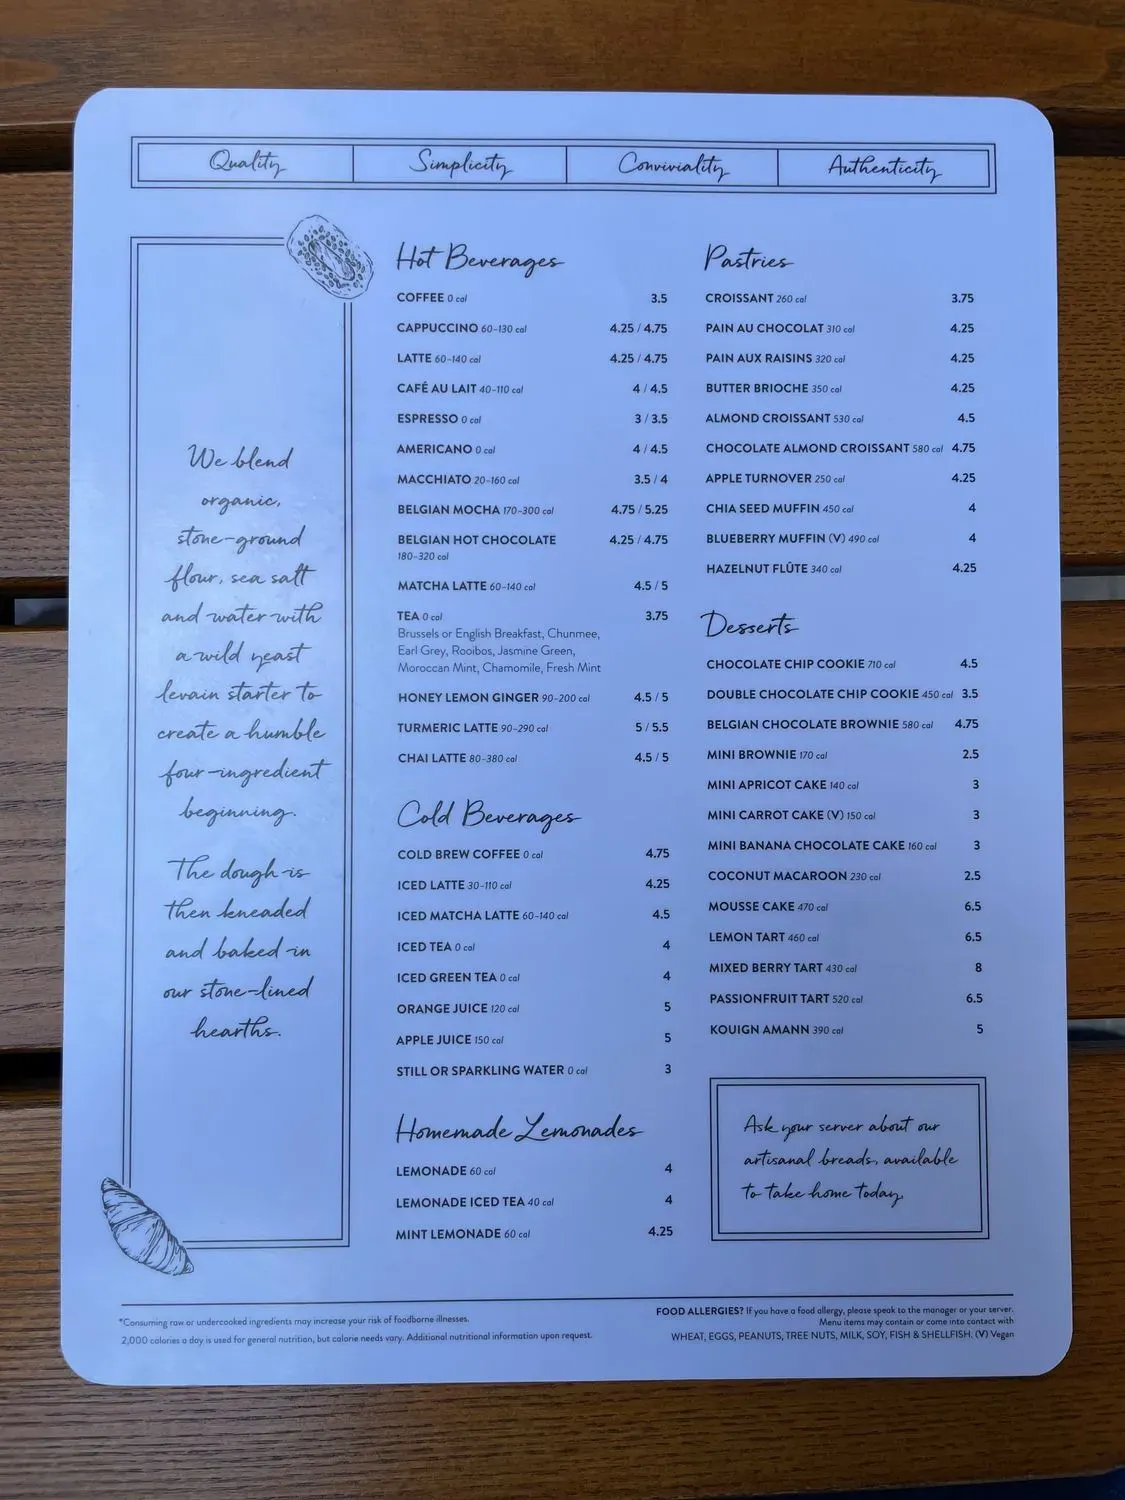 Quality
Simplicity
Conviviality
Authenticity
We blend
organic,
stone-ground
flour, sea salt
and water with
a wild yeast
levain starter to
create a humble
four-ingredient
beginning.
The dough is
then kneaded
and baked in
our stone-lined
hearths.
Hot Beverages
COFFEE 0 cal 3.5
CAPPUCCINO 60-130 cal 4.25 / 4.75
LATTE 60-140 cal 4.25 / 4.75
CAFÉ AU LAIT 40-110 cal 4 / 4.5
ESPRESSO 0 cal 3 / 3.5
AMERICANO 0 cal 4 / 4.5
MACCHIATO 20-160 cal 3.5 / 4
BELGIAN MOCHA 170-300 cal 4.75 / 5.25
BELGIAN HOT CHOCOLATE 4.25 / 4.75
180-320 cal
MATCHA LATTE 60-140 cal 4.5 / 5
TEA 0 cal 3.75
Brussels or English Breakfast, Chunmee,
Earl Grey, Rooibos, Jasmine Green,
Moroccan Mint, Chamomile, Fresh Mint
HONEY LEMON GINGER 90-200 cal 4.5 / 5
TURMERIC LATTE 90-290 cal 5 / 5.5
CHAI LATTE 80-380 cal 4.5 / 5
Cold Beverages
COLD BREW COFFEE 0 cal 4.75
ICED LATTE 30-110 cal 4.25
ICED MATCHA LATTE 60-140 cal 4.5
ICED TEA 0 cal 4
ICED GREEN TEA 0 cal 4
ORANGE JUICE 120 cal 5
APPLE JUICE 150 cal 5
STILL OR SPARKLING WATER 0 cal 3
Homemade Lemonades
LEMONADE 60 cal 4
LEMONADE ICED TEA 40 cal 4
MINT LEMONADE 60 cal 4.25
Pastries
CROISSANT 260 cal 3.75
PAIN AU CHOCOLAT 310 cal 4.25
PAIN AUX RAISINS 320 cal 4.25
BUTTER BRIOCHE 350 cal 4.25
ALMOND CROISSANT 530 cal 4.5
CHOCOLATE ALMOND CROISSANT 580 cal 4.75
APPLE TURNOVER 250 cal 4.25
CHIA SEED MUFFIN 450 cal 4
BLUEBERRY MUFFIN (V) 490 cal 4
HAZELNUT FLÛTE 340 cal 4.25
Desserts
CHOCOLATE CHIP COOKIE 710 cal 4.5
DOUBLE CHOCOLATE CHIP COOKIE 450 cal 3.5
BELGIAN CHOCOLATE BROWNIE 580 cal 4.75
MINI BROWNIE 170 cal 2.5
MINI APRICOT CAKE 140 cal 3
MINI CARROT CAKE (V) 150 cal 3
MINI BANANA CHOCOLATE CAKE 160 cal 3
COCONUT MACAROON 230 cal 2.5
MOUSSE CAKE 470 cal 6.5
LEMON TART 460 cal 6.5
MIXED BERRY TART 430 cal 8
PASSIONFRUIT TART 520 cal 6.5
KOUIGN AMANN 390 cal 5
Ask your server about our
artisanal breads, available
to take home today.
*Consuming raw or undercooked ingredients may increase your risk of foodborne illnesses.
2,000 calories a day is used for general nutrition, but calorie needs vary. Additional nutritional information upon request.
FOOD ALLERGIES? If you have a food allergy, please speak to the manager or your server.
Menu items may contain or come into contact with
WHEAT, EGGS, PEANUTS, TREE NUTS, MILK, SOY, FISH & SHELLFISH. (V) Vegan